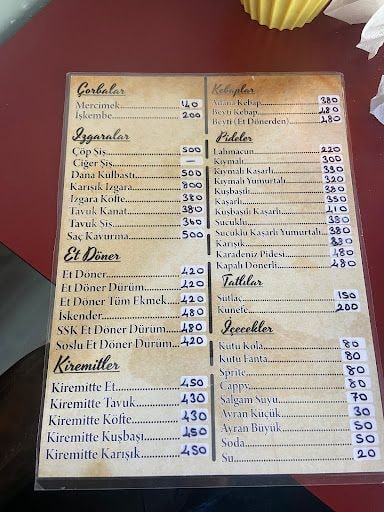 Çorbalar
Mercimek 140
İşkembe 200
Izgaralar
Çöp Şiş 500
Ciğer Şiş —
Dana Külbastı 500
Karışık Izgara 800
Izgara Köfte 380
Tavuk Kanat 380
Tavuk Şiş 360
Saç Kavurma 500
Et Döner
Et Döner 420
Et Döner Dürüm 420
Et Döner Tüm Ekmek 420
İskender 480
SSK Et Döner Dürüm 480
Soslu Et Döner Dürüm 420
Kiremitler
Kiremitte Et 450
Kiremitte Tavuk 430
Kiremitte Köfte 430
Kiremitte Kuşbaşı 450
Kiremitte Karışık 450
Kebaplar
Adana Kebap 380
Beyti Kebap 480
Beyti (Et Dönerden) 480
Pideler
Lahmacun 220
Kıymalı 300
Kıymalı Kaşarlı 330
Kıymalı Yumurtalı 320
Kuşbaşılı 380
Kaşarlı 350
Kuşbaşılı Kaşarlı 410
Sucuklu 380
Sucuklu Kaşarlı Yumurtalı 380
Karışık
Karadeniz Pidesi 480
Kapalı Dönerli 480
Tatlılar
Sütlaç 150
Künefe 200
İçecekler
Kutu Kola 80
Kutu Fanta 80
Sprite 80
Cappy 80
Şalgam Suyu 70
Ayran Küçük 30
Ayran Büyük 50
Soda 50
Su 20